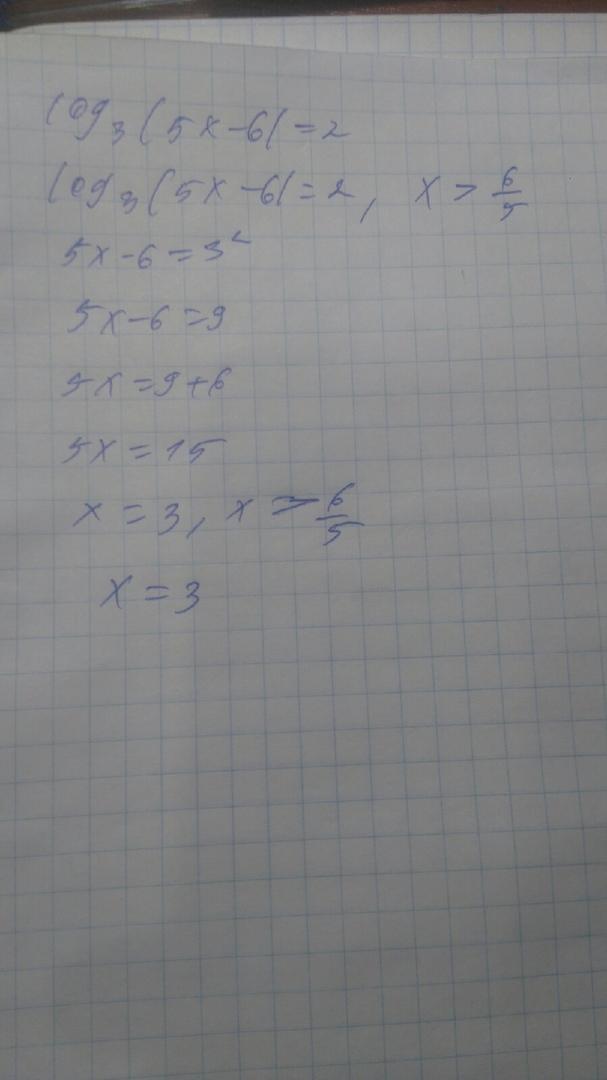 log₃(5x-6)=2
log₃(5x-6)=2, x > 6/5
5x-6=3²
5x-6=9
5x=9+6
5x=15
x=3, x > 6/5
x=3